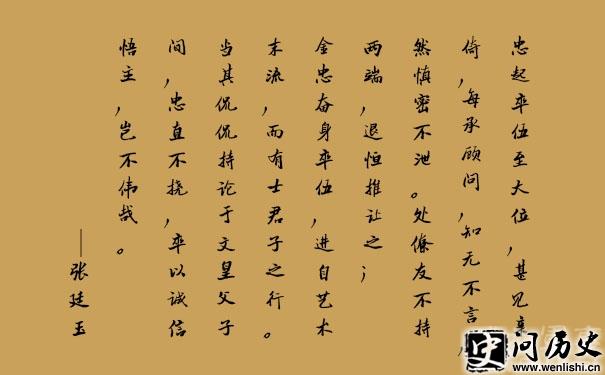 忠起卒伍至大位，甚见亲
倚，每承顾问，知无不言，
然慎密不泄。处僚友不持
两端，退恒推让之；
金忠奋身卒伍，进自艺术
末流，而有士君子之行。
当其侃侃持论于文皇父子
间，忠直不挠，卒以诚信
悟主，岂不伟哉。
——张廷玉
问历史
www.wenlishi.cn